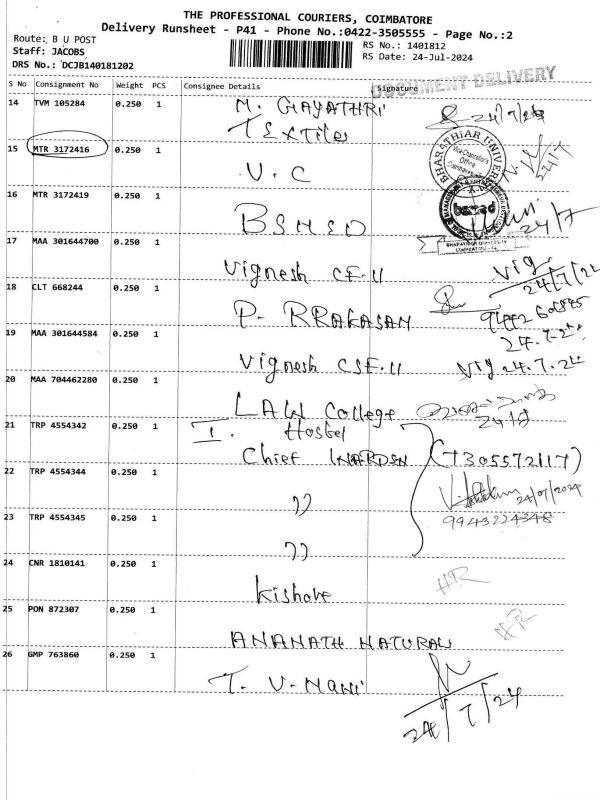 THE PROFESSIONAL COURIERS, COIMBATORE
Delivery Runsheet - P41 - Phone No.:0422-3505555 - Page No.:2
Route: B U POST
Staff: JACOBS
DRS No.: DCJB140181202
RS No.: 1401812
RS Date: 24-Jul-2024
DOCUMENT DELIVERY
S No Consignment No Weight PCS Consignee Details Signature
14 TVM 105284 0.250 1 M. GAYATHRI
Textiles
24/7/24
15 MTR 3172416 0.250 1 V.C
BHARATHIAR UNIVERSITY
Vice-Chancellor's
Office
24/7
16 MTR 3172419 0.250 1 BSMED
bsmed
24/7
BHARATHIAR UNIVERSITY
17 MAA 301644700 0.250 1 Vignesh CE-II
Vig
24/7/24
18 CLT 668244 0.250 1 P-
24.7.24
19 MAA 301644584 0.250 1 Vignesh CSE-II Vig 24.7.24
20 MAA 704462280 0.250 1 LAW College
21 TRP 4554342 0.250 1 I. Hostel
Chief WARDEN (7305572117)
22 TRP 4554344 0.250 1 ))
24/07/2024
9943224348
23 TRP 4554345 0.250 1 ))
24 CNR 1810141 0.250 1 Kishore HR
25 PON 872307 0.250 1 HR
26 GMP 763860 0.250 1 T. V-Mani
24/7/24